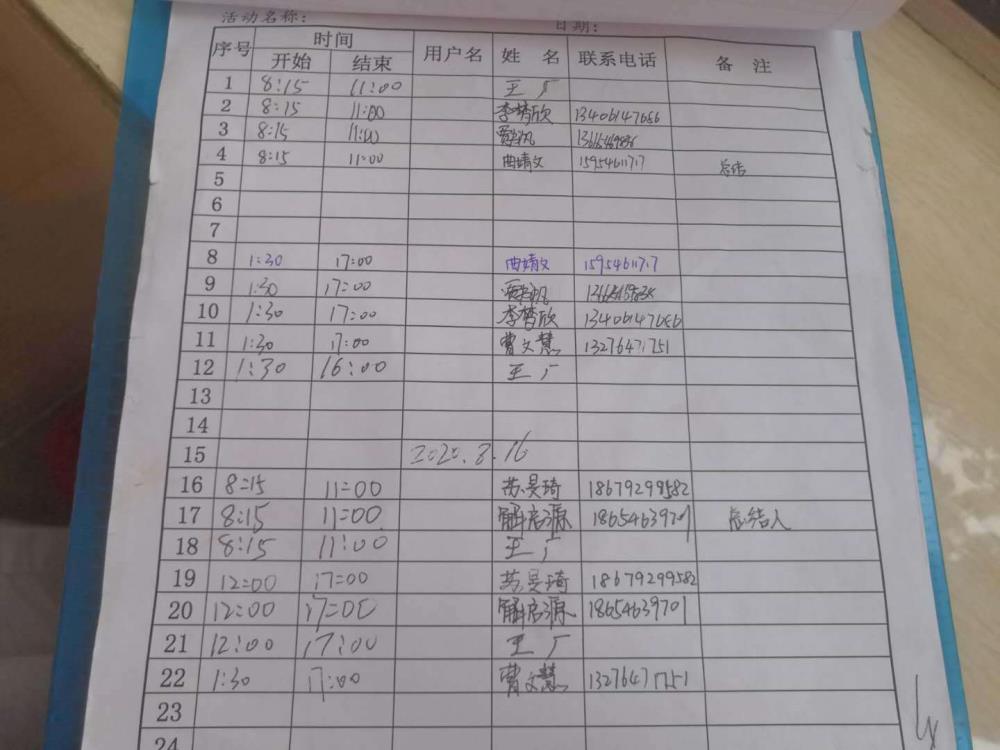 活动名称: 日期:
序号 时间 用户名 姓 名 联系电话 备 注
开始 结束
1 8:15 11:00 王厂
2 8:15 11:00 李梦欣 13406147686
3 8:15 11:00
4 8:15 11:00 曲靖文 15954611717 总结
5
6
7
8 1:30 17:00 曲靖文 15954611717
9 1:30 17:00
10 1:30 17:00 李梦欣 13406147686
11 1:30 17:00 曹文慧 13276471751
12 1:30 16:00 王厂
13
14
15 2020.8.16
16 8:15 11:00 苏昊琦 18679299582
17 8:15 11:00 解启源 18654639701 总结人
18 8:15 11:00 王厂
19 12:00 17:00 苏昊琦 18679299582
20 12:00 17:00 解启源 18654639701
21 12:00 17:00 王厂
22 1:30 17:00 曹文慧 13276471751
23
24